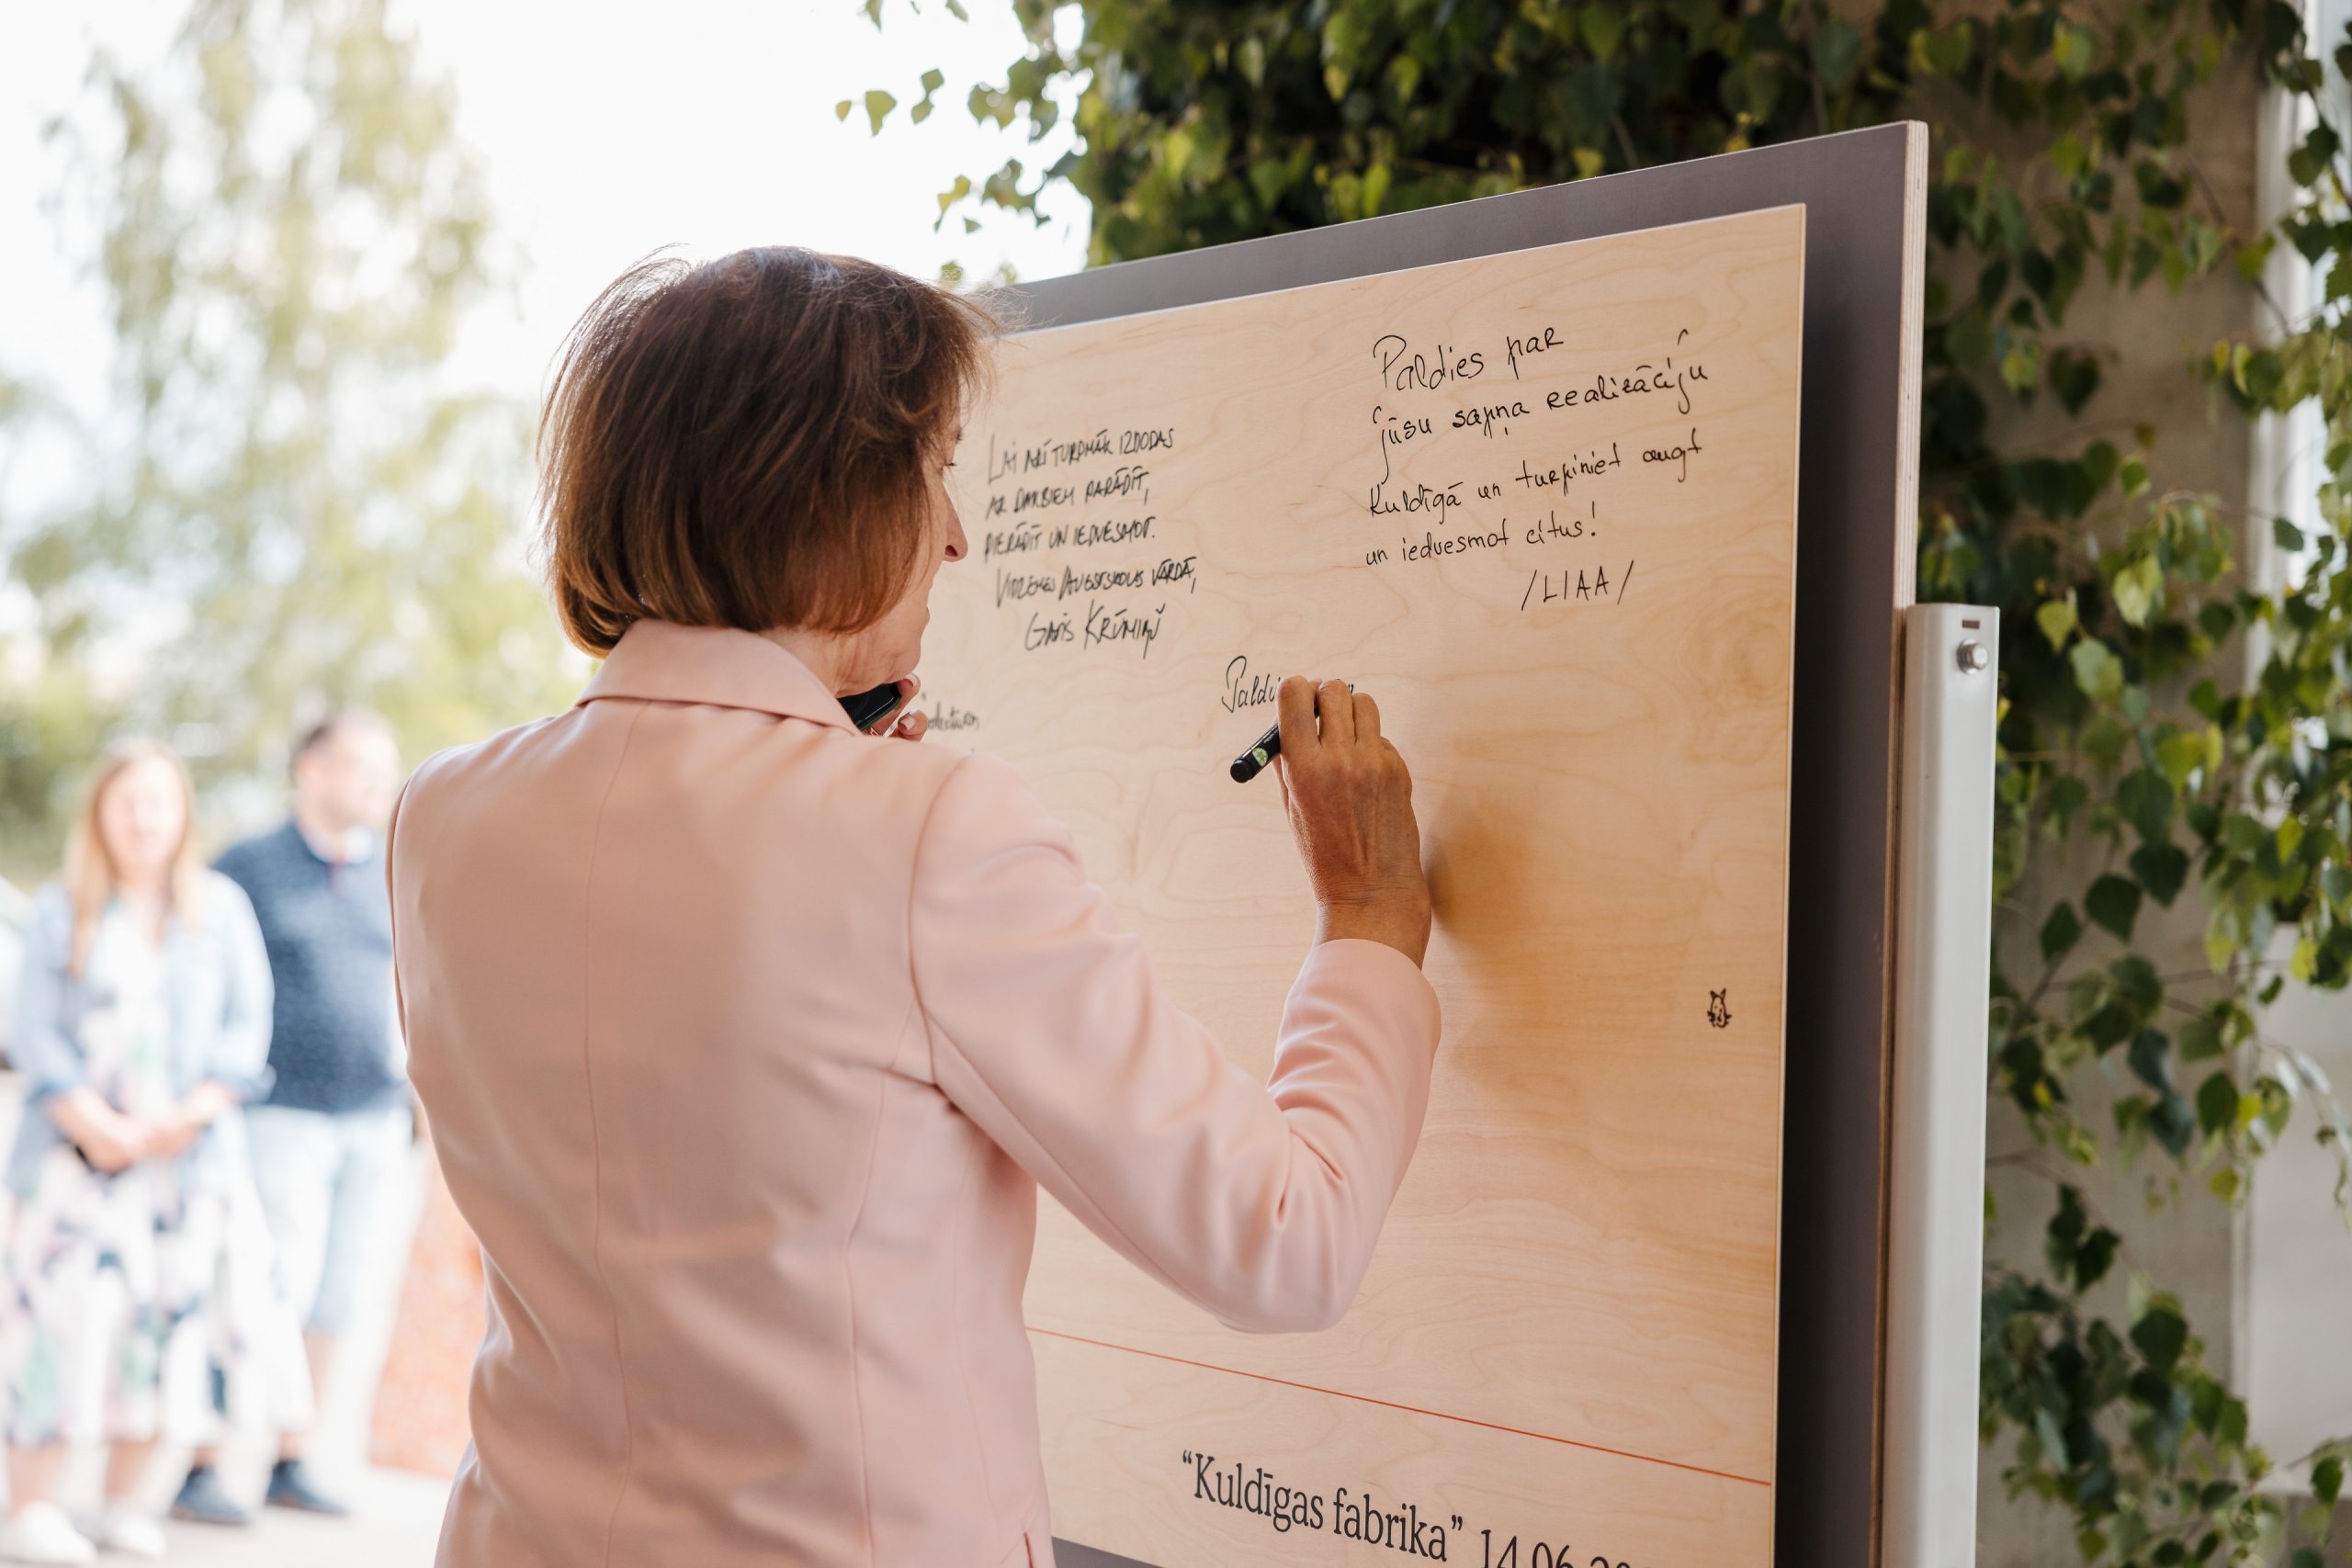 Lai arī turpmāk izdodas
ar darbiem parādīt,
pierādīt un iedvesmot.
Vidzemes Augstskolas vārdā,
Gatis Krūmiņš
Paldies par
jūsu sapņa realizāciju
Kuldīgā un turpiniet augt
un iedvesmot citus!
/LIAA/
Paldi
“Kuldīgas fabrika” 14.06.20